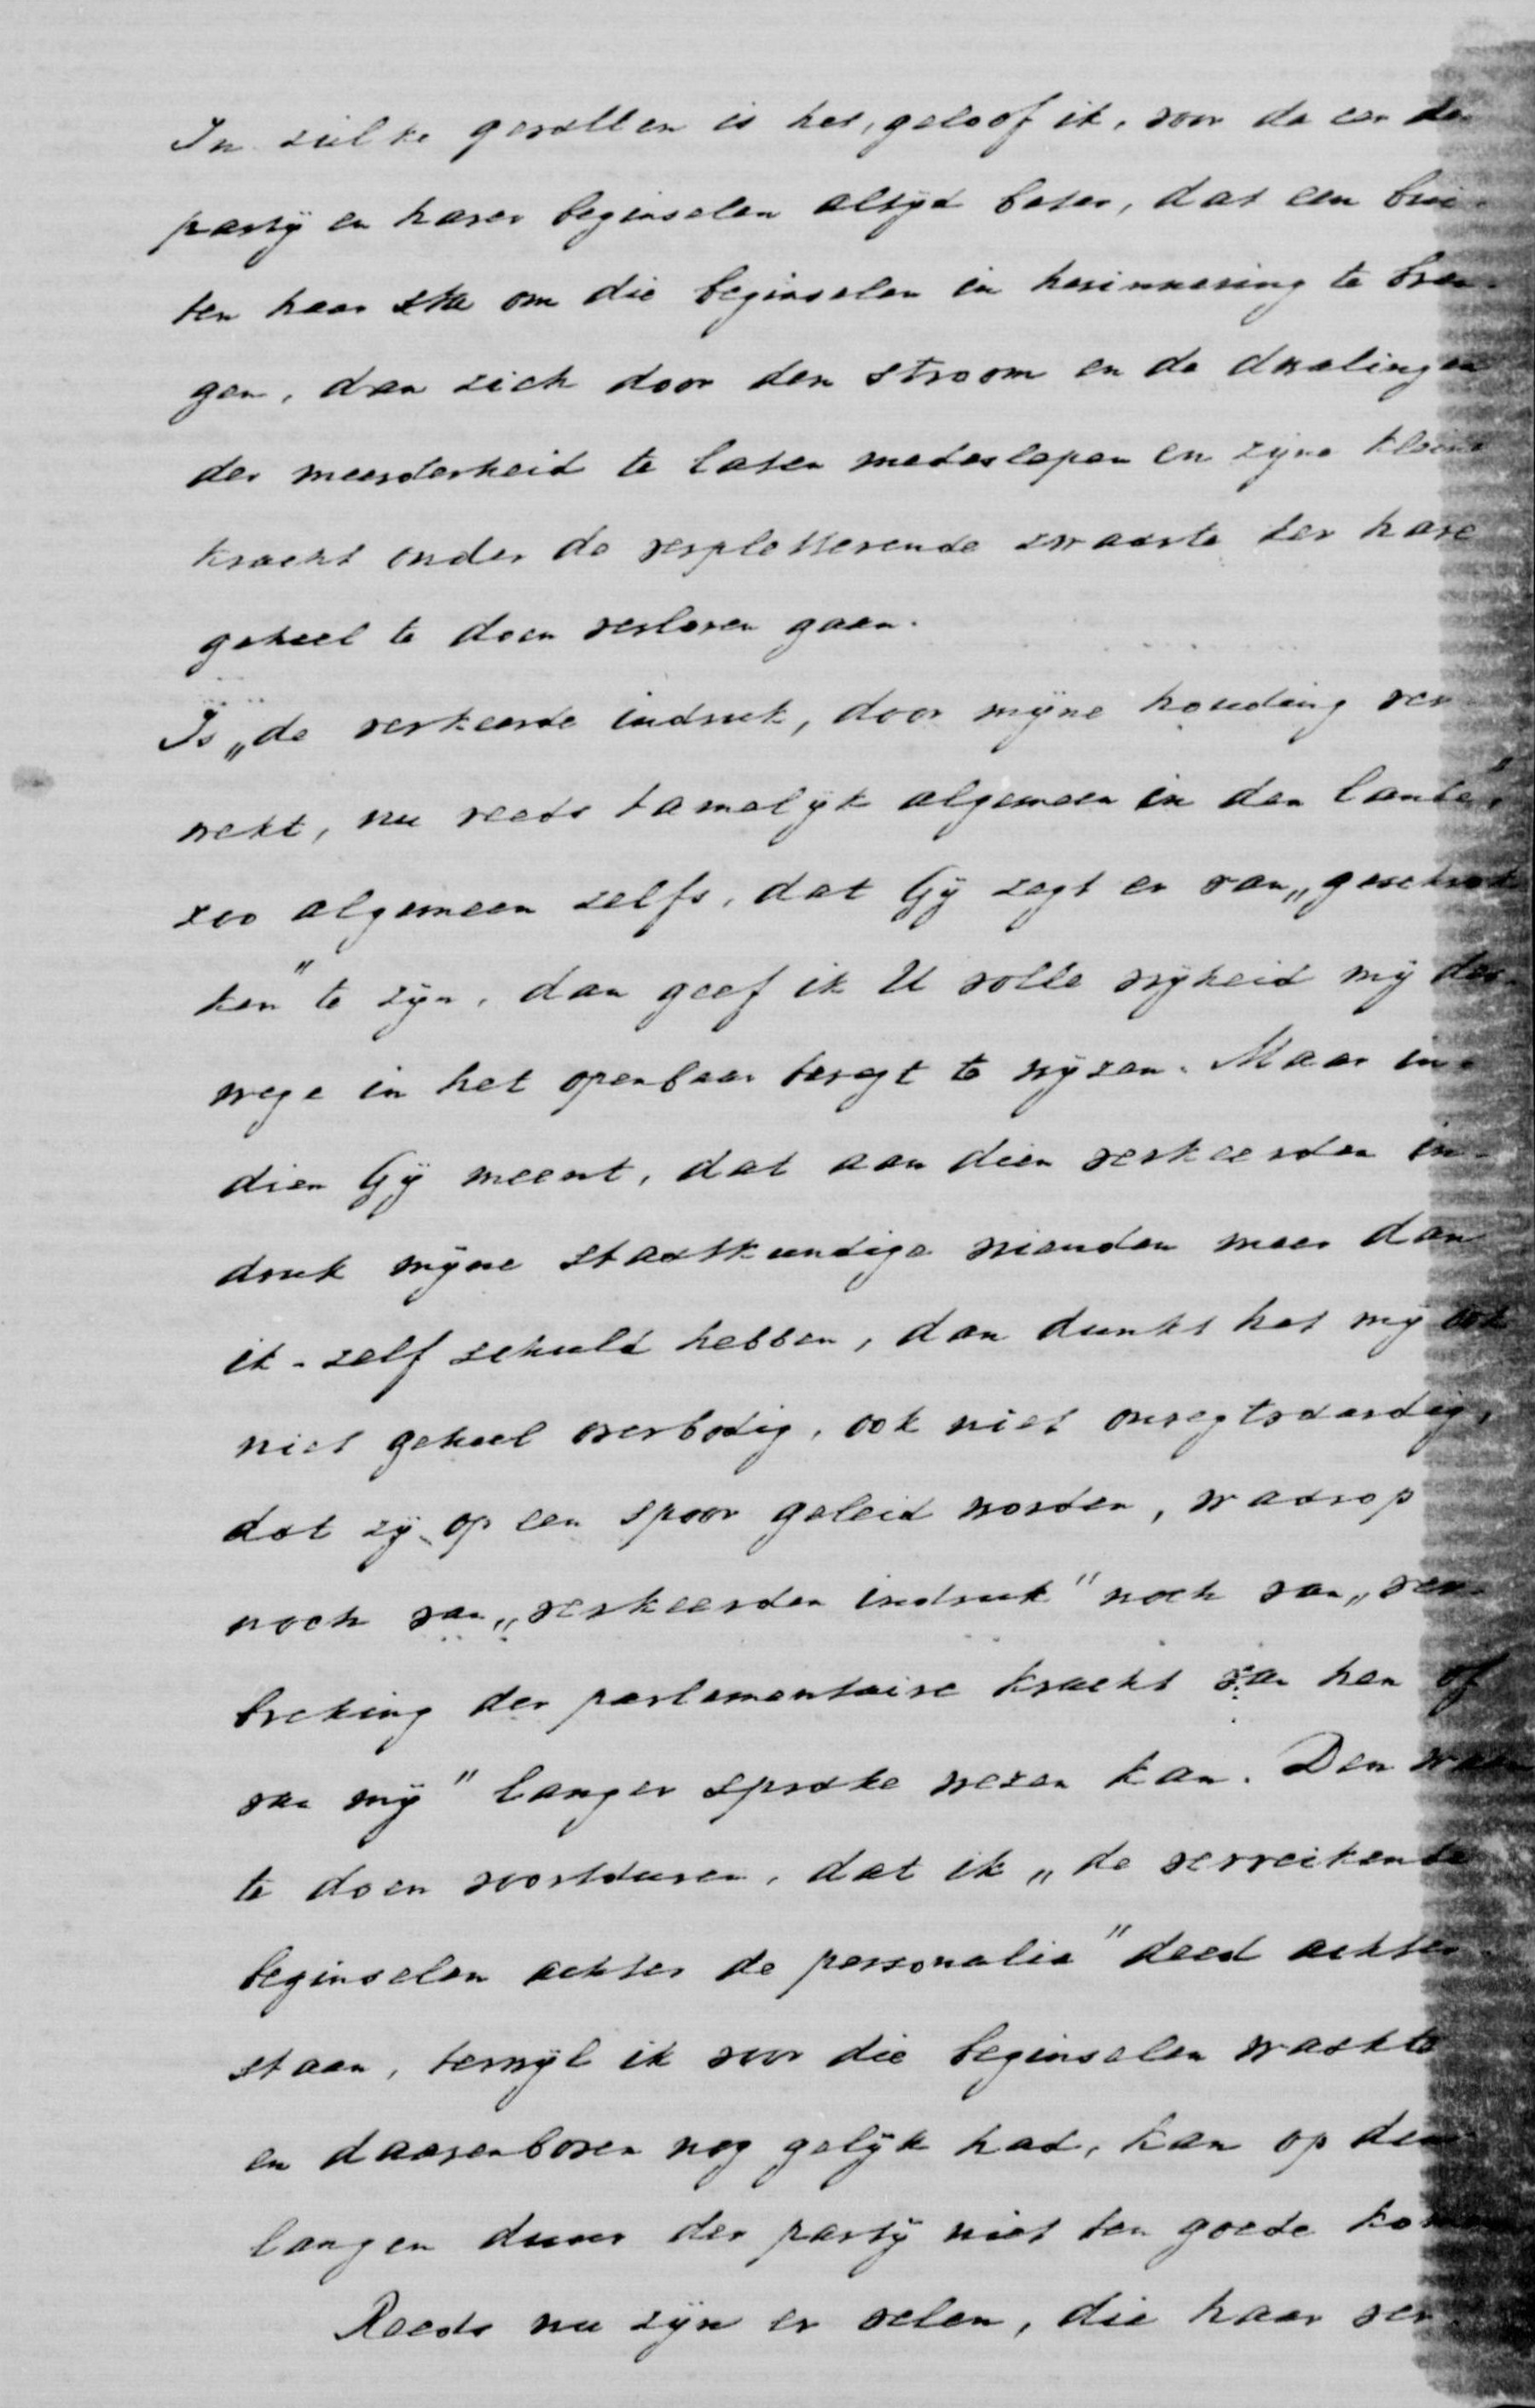 In zulke gevallen is het, geloof ik, voor de eer der
partij en harer beginselen altijd beter, dat een bui-
ten haar sta om die beginselen in herinnering te bren-
gen, dan zich door den stroom en de dwalingen
der meerderheid te laten medeslepen en zijne kleine
kracht onder de verpletterende zwaarte der hare
geheel te doen verloren gaan.
Is „de verkeerde indruk, door mijne houding ver-
wekt, nu reeds tamelijk algemeen in den lande",
zoo algemeen zelfs, dat Gij zegt er van „geschrok-
ken" te zijn, dan geef ik U volle vrijheid mij der-
wege in het openbaar teregt te wijzen. Maar in-
dien Gij meent, dat aan dien verkeerden in-
druk mijne staatkundige vrienden meer dan
ik-zelf schuld hebben, dan dunkt het mij ook
niet geheel overbodig, ook niet onregtvaardig,
dat zij op een spoor geleid worden, waarop
noch van „verkeerden indruk" noch van „ver-
breking der parlementaire kracht van hen of
van mij" langer sprake wezen kan. Den waan
te doen voortduren, dat ik „de verreikende
beginselen achter de personalia" deed achter-
staan, terwijl ik voor die beginselen waakte
en daarenboven nog gelijk had, kan op den
langen duur der partij niet ten goede komen
Reeds nu zijn er velen, die haar ver-